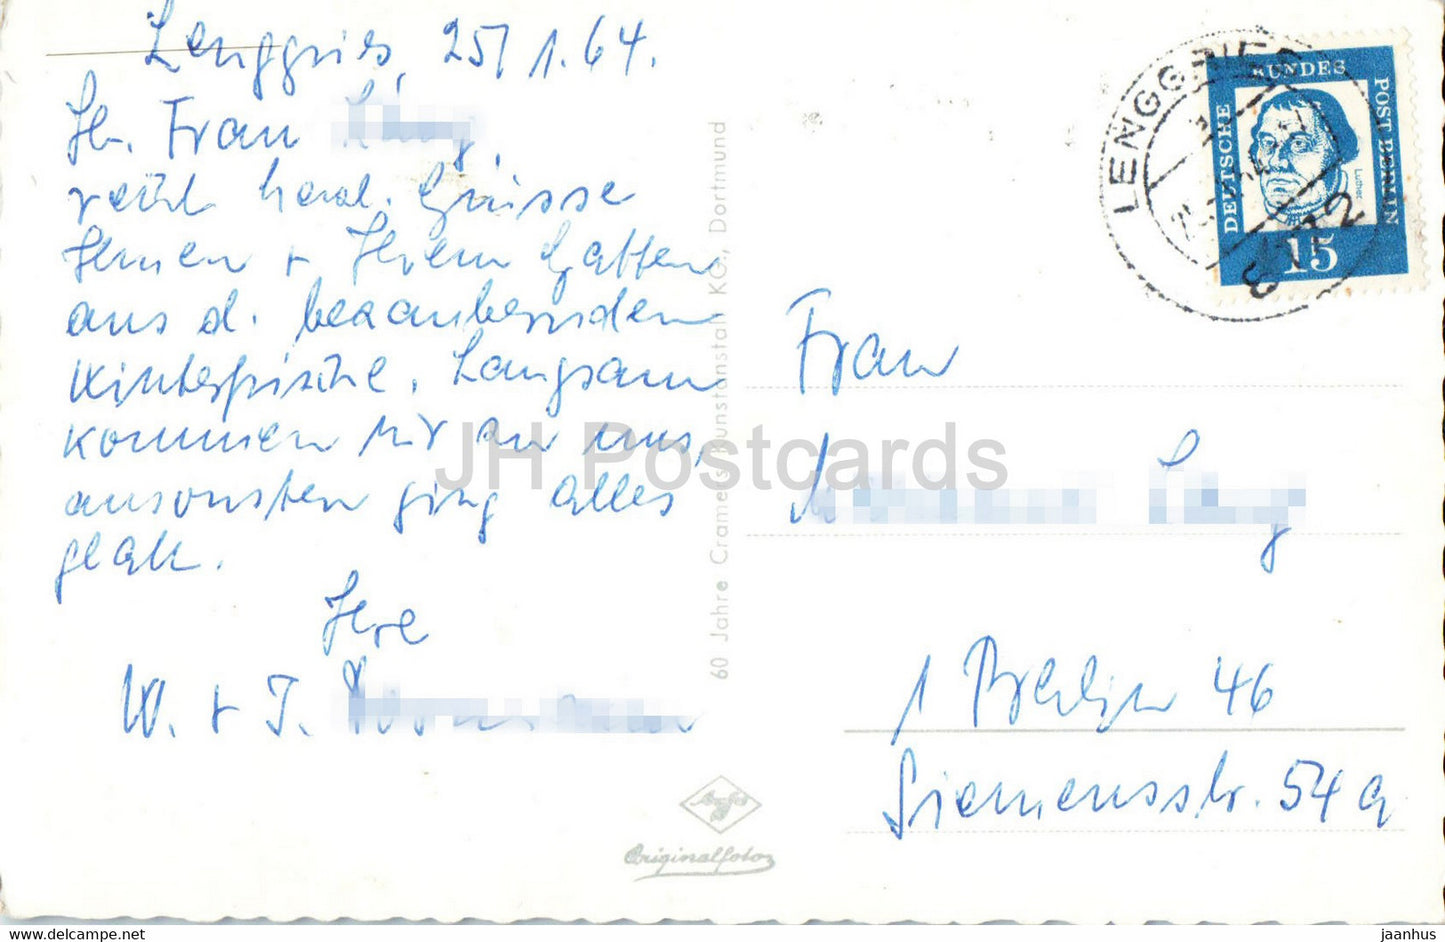 Lenggries, 25/1.64.
Lb. Frau
recht herzl. Grüsse
Ihnen + Ihrem Gatten
aus d. bezaubernden
Winterfrische. Langsam
kommen wir zu uns,
ansonsten ging alles
glatt.
Ihre
W. + I.
60 Jahre Cramers Kunstanstalt KG., Dortmund
Agfa
Originalfoto
LENGGRIES
8172
DEUTSCHE BUNDES POST BERLIN
Luther
15
Frau
1 Berlin 46
Siemensstr. 54a
JH Postcards
www.delcampe.net
jaanhus